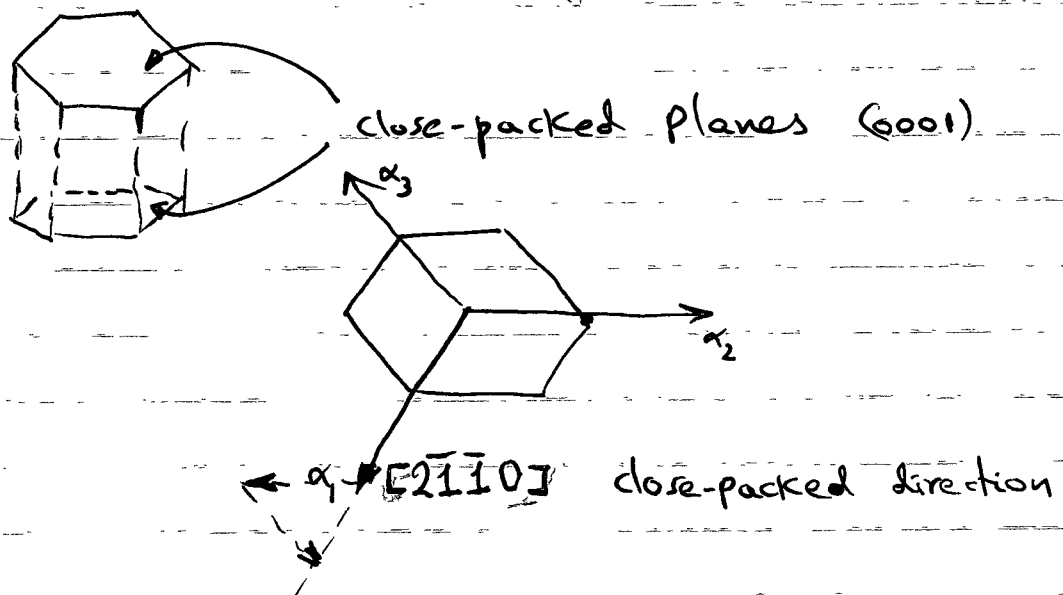 close-packed planes (0001)
α₃
α₂
α₁ [21̄1̄0] close-packed direction